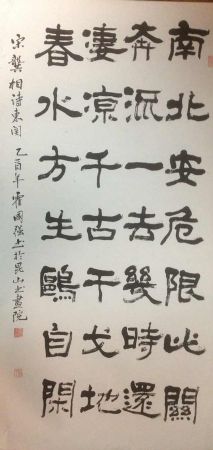 南北安危限此關
奔派一去幾時還
凄涼千古干戈地
春水方生鷗自閑
宋龔相詩東関 乙酉年霍國强书於昆山书畫院